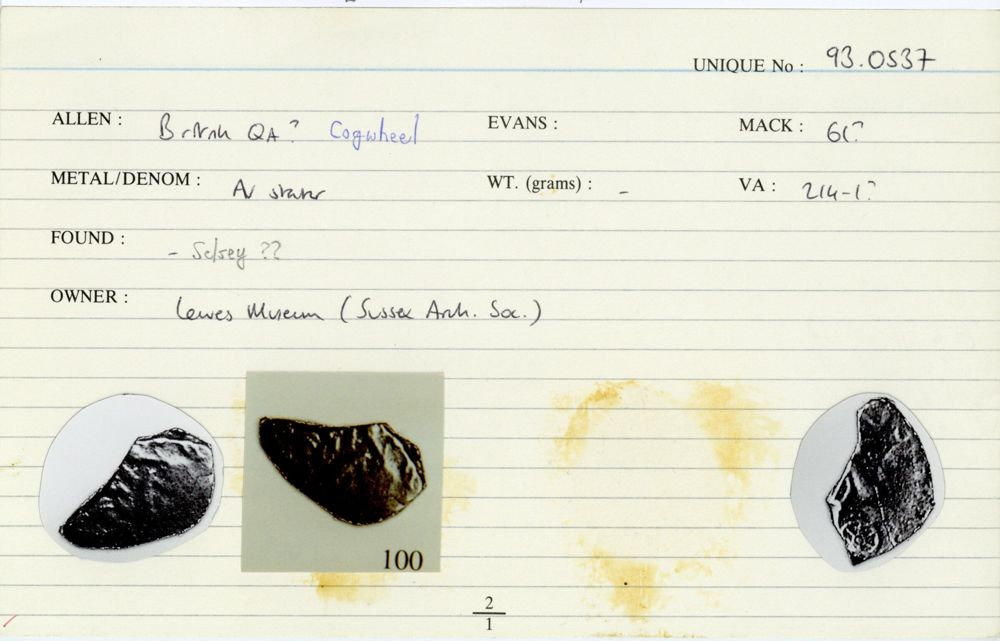 UNIQUE No : 93.0537
ALLEN : British QA? Cogwheel EVANS : MACK : 61?
METAL/DENOM : AV stater WT. (grams) : – VA : 214-1?
FOUND : – Selsey ??
OWNER : Lewes Museum (Sussex Arch. Soc.)
100
2
1